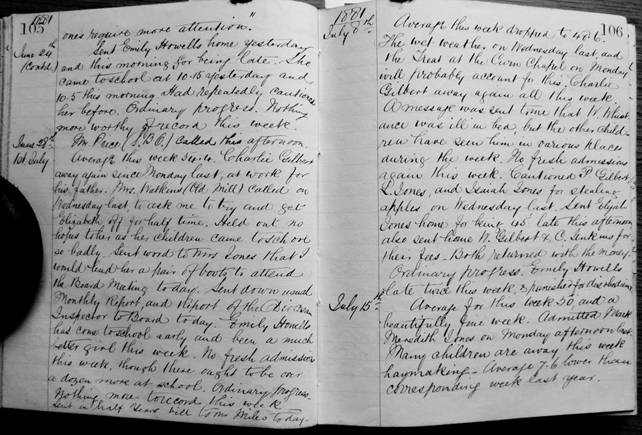 105
1881
ones require more attention."
June 24th
Sent Emily Howells home yesterday
(Contd.)
and this morning for being late. She
came to school at 10.15 yesterday and
10.5 this morning. Had repeatedly cautioned
her before. Ordinary progress. Nothing
more worthy of record this week.
June 28th
Mr Price (S.B.C.) called this afternoon.
1st July
Average this week 54.4. Charlie Gilbert
away again since Monday last, at work for
his father. Mrs. Watkins (Old Mill) called on
Wednesday last to ask me to try and get
Elizabeth off for half time. Held out no
hopes to her as her children came to school
so badly. Sent word to Mrs Jones that I
would lend her a pair of boots to attend
the Board Meeting today. Sent down usual
Monthly Report, and Report of the Diocesan
Inspector to Board today. Emily Howells
has come to school early and been a much
better girl this week. No fresh admission
this week, though there ought to be over
a dozen more at school. Ordinary Progress.
Nothing more to record this week
Sent in half years bill to Mr Miles today.
106
1881
July 8th
Average this week dropped to 48.6.
The wet weather on Wednesday last, and
the Treat at the Cwm Chapel on Monday
will probably account for this. Charlie
Gilbert away again all this week.
A message was sent to me that W.
was ill in bed, but the other child-
ren have seen him in various places
during the week. No fresh admissions
again this week. Cautioned P. Gilbert,
S. Jones, and Isaiah Jones for stealing
apples on Wednesday last. Sent Elijah
Jones home for being 45' late this afternoon
also sent home W. Gilbert & C. Jenkins for
their fees. Both returned with the money.
Ordinary progress. Emily Howells
late twice this week, & punished for disobedience
July 15th
Average for this week 50 and a
beautifully fine week. Admitted Mark
Meredith Jones on Monday afternoon last.
Many children are away this week
haymaking – Average 7.6 lower than
corresponding week last year.